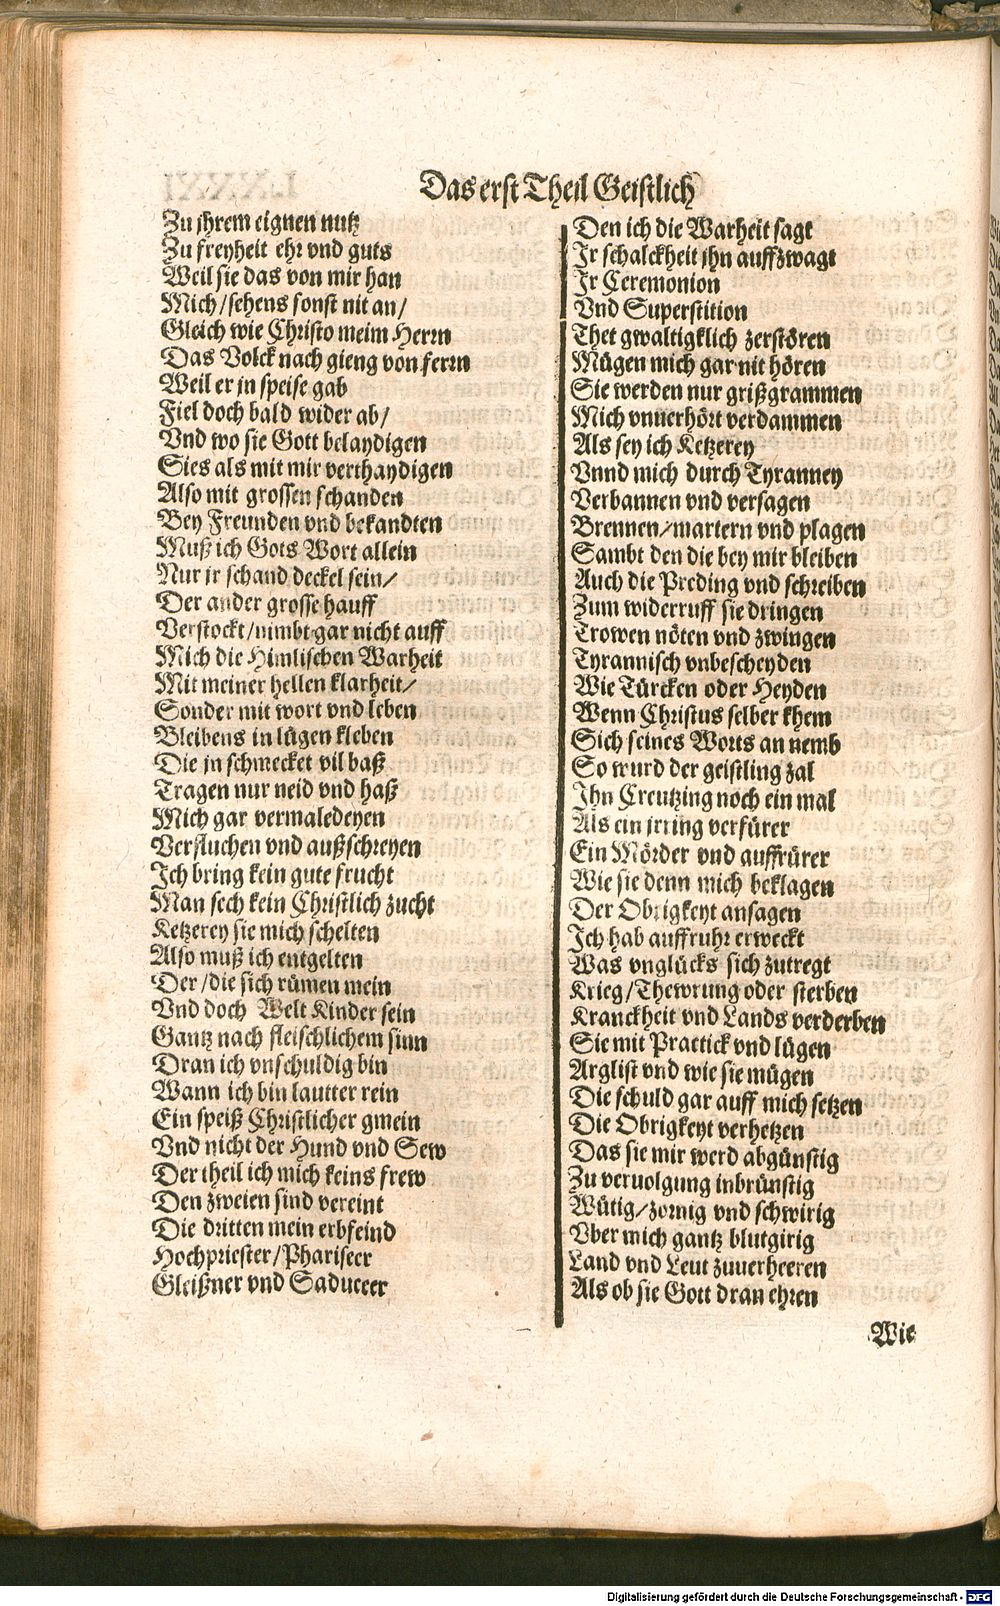 Das erst Theil Geistlich
Zu ihrem eignen nutz
Zu freyheit ehr vnd guts
Weil sie das von mir han
Mich/sehens sonst nit an/
Gleich wie Christo meim Herrn
Das Volck nach gieng von ferrn
Weil er in speise gab
Fiel doch bald wider ab/
Vnd wo sie Gott belaydigen
Sies als mit mir verthaydigen
Also mit grossen schanden
Bey Freunden vnd bekandten
Muß ich Gots Wort allein
Nur jr schand deckel sein/
Der ander grosse hauff
Verstockt/nimbt gar nicht auff
Mich die Himlischen Warheit
Mit meiner hellen klarheit/
Sonder mit wort vnd leben
Bleibens in lügen kleben
Die jn schmecket vil baß
Tragen nur neid vnd haß
Mich gar vermaledeyen
Verfluchen vnd außschreyen
Ich bring kein gute frucht
Man sech kein Christlich zucht
Ketzerey sie mich schelten
Also muß ich entgelten
Der/die sich rümen mein
Vnd doch Welt Kinder sein
Gantz nach fleischlichem sinn
Dran ich vnschuldig bin
Wann ich bin lautter rein
Ein speiß Christlicher gmein
Vnd nicht der Hund vnd Sew
Der theil ich mich keins frew
Den zweien sind vereint
Die dritten mein erbfeind
Hochpriester/Phariseer
Gleißner vnd Saduceer
Den ich die Warheit sagt
Ir schalckheit jhn auffzwagt
Ir Ceremonion
Vnd Superstition
Thet gwaltigklich zerstören
Mügen mich gar nit hören
Sie werden nur grißgrammen
Mich vnuerhört verdammen
Als sey ich Ketzerey
Vnnd mich durch Tyranney
Verbannen vnd versagen
Brennen/martern vnd plagen
Sambt den die bey mir bleiben
Auch die Preding vnd schreiben
Zum widerruff sie dringen
Trowen nöten vnd zwingen
Tyrannisch vnbescheyden
Wie Türcken oder Heyden
Wenn Christus selber khem
Sich seines Worts an nemb
So wurd der geistling zal
Ihn Creutzing noch ein mal
Als ein jrring verfürer
Ein Mörder vnd auffrürer
Wie sie denn mich beklagen
Der Obrigkeyt ansagen
Ich hab auffruhr erweckt
Was vnglücks sich zutregt
Krieg/Thewrung oder sterben
Kranckheit vnd Lands verderben
Sie mit Practick vnd lügen
Arglist vnd wie sie mügen
Die schuld gar auff mich setzen
Die Obrigkeyt verhetzen
Das sie mir werd abgünstig
Zu veruolgung inbrünstig
Wütig/zornig vnd schwirig
Vber mich gantz blutgirig
Land vnd Leut zuuerheeren
Als ob sie Gott dran ehren
Wie
Digitalisierung gefördert durch die Deutsche Forschungsgemeinschaft - DFG